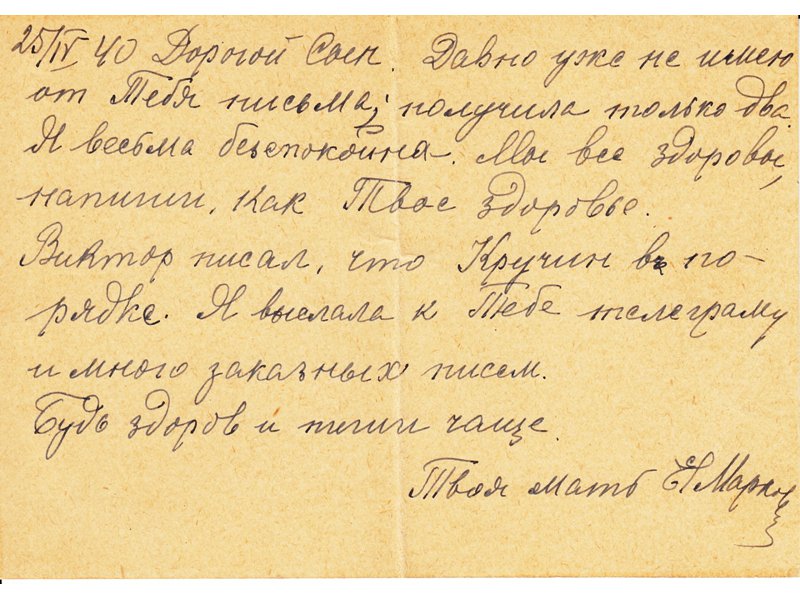 25/IV 40 Дорогой Сын. Давно уже не имею
от Тебя письма; получила только два.
Я весьма безпокойна. Мы все здоровы,
напиши, как Твое здоровье.
Виктор писал, что Кручин въ по-
рядке. Я выслала к Тебе телеграму
и много заказных писем.
Будь здоров и пиши чаще.
Твоя мать